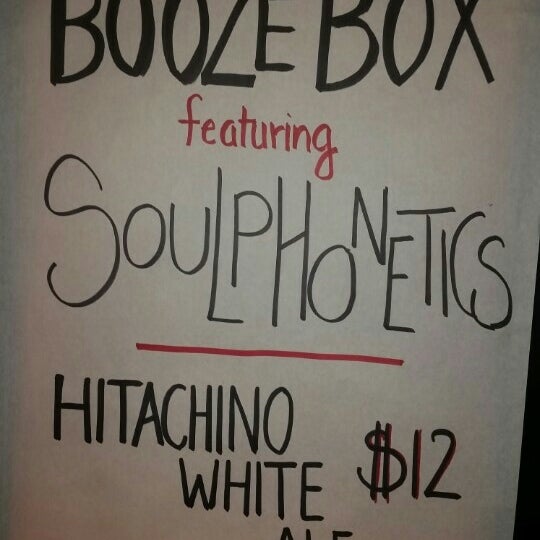 BOOZE BOX
featuring
SOULPHONETICS
HITACHINO
WHITE $12
ALE